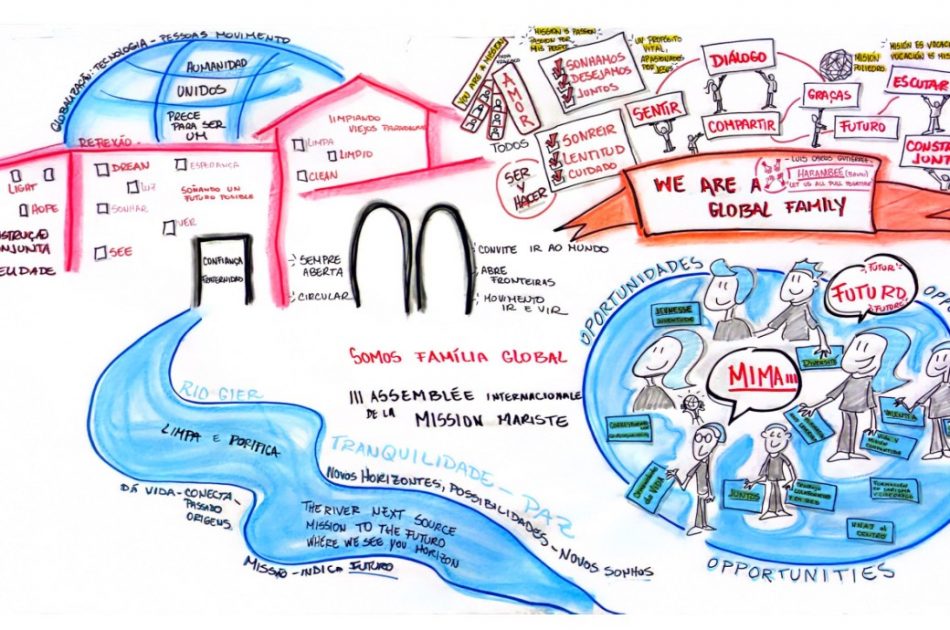 GLOBALIZAÇÃO: TECNOLOGIA - PESSOAS MOVIMENTO
HUMANIDAD
UNIDOS
PRECE
PARA SER
UM
REFLEXÃO
LIGHT
HOPE
DREAN
LUZ
ESPERANÇA
SOÑANDO UN
FUTURO POSIBLE
SONHAR
VER
SEE
CONFIANÇA
FRATERNIDAD
LIMPIANDO
VIEJOS PARADIGMAS
LIMPA
LIMPIO
CLEAN
SEMPRE
ABERTA
CIRCULAR
CONVITE IR AO MUNDO
ABRE
FRONTEIRAS
MOVIMENTO
IR E VIR
YOU ARE A MISSION
AMOR
TODOS
SER
Y
HACER
MISSION IS PASSION
PASSION FOR
SONHAMOS
DESEJAMOS
JUNTOS
SONREIR
LENTITUD
CUIDADO
UN PROPÓSITO
VITAL,
APASIONADOS
POR JESUS
SENTIR
DIÁLOGO
COMPARTIR
GRAÇAS
FUTURO
MISIÓN
POLIEDRO
MISIÓN ES VOCACI
VOCACIÓN ES MIS
ESCUTAR
CONST
JUNT
WE ARE A
GLOBAL FAMILY
HARAMBEE
LET US ALL PULL TOGETHER
SOMOS FAMÍLIA GLOBAL
III ASSEMBLÉE INTERNACIONALE
DE LA
MISSION MARISTE
RIO GIER
LIMPA E PORIFICA
DÁ VIDA - CONECTA -
PASSADO
ORIGENS.
TRANQUILIDADE - PAZ
NOVOS HORIZONTES, POSSIBILIDADES - NOVOS SONHOS
THE RIVER NEXT SOURCE
MISSION TO THE FUTURO
WHERE WE SEE YOU HORIZON
MISSÃO - INDICA FUTURO
OPORTUNIDADES
FUTURO
MIMA III
JEUNESSE
JUNTOS
OPPORTUNITIES